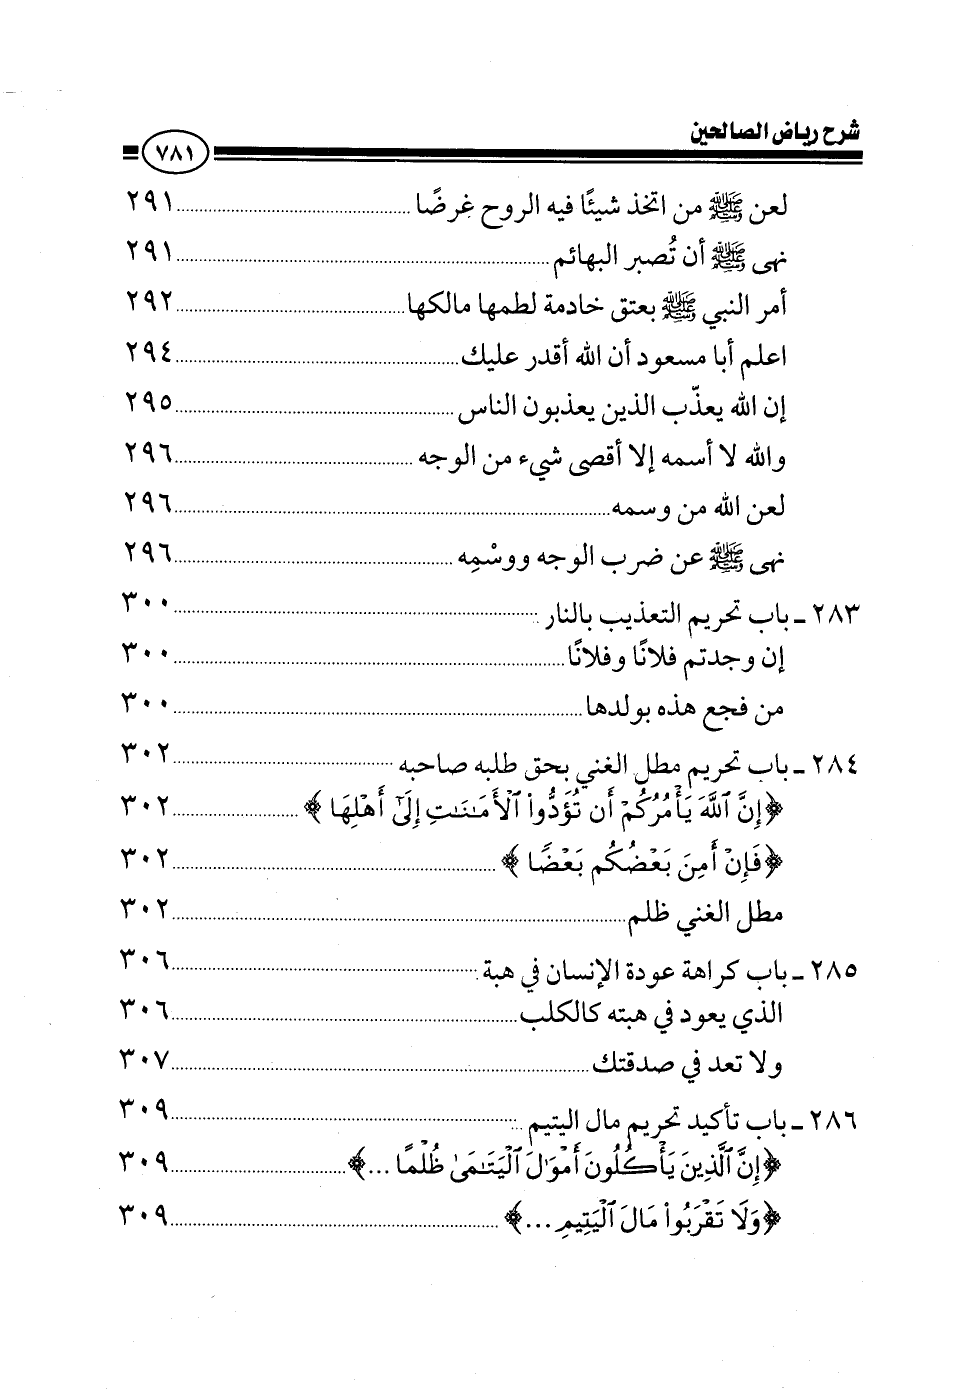 شرح رياض الصالحين
٧٨١
لعن ﷺ من اتخذ شيئًا فيه الروح غرضًا ........ ٢٩١
نهى ﷺ أن تُصبر البهائم ........ ٢٩١
أمر النبي ﷺ بعتق خادمة لطمها مالكها ........ ٢٩٢
اعلم أبا مسعود أن الله أقدر عليك ........ ٢٩٤
إن الله يعذّب الذين يعذبون الناس ........ ٢٩٥
والله لا أسمه إلا أقصى شيء من الوجه ........ ٢٩٦
لعن الله من وسمه ........ ٢٩٦
نهى ﷺ عن ضرب الوجه ووسْمِه ........ ٢٩٦
٢٨٣ ـ باب تحريم التعذيب بالنار ........ ٣٠٠
إن وجدتم فلانًا وفلانًا ........ ٣٠٠
من فجع هذه بولدها ........ ٣٠٠
٢٨٤ ـ باب تحريم مطل الغني بحق طلبه صاحبه ........ ٣٠٢
﴿إِنَّ ٱللَّهَ يَأْمُرُكُمْ أَن تُؤَدُّواْ ٱلْأَمَٰنَٰتِ إِلَىٰٓ أَهْلِهَا﴾ ........ ٣٠٢
﴿فَإِنْ أَمِنَ بَعْضُكُم بَعْضًا﴾ ........ ٣٠٢
مطل الغني ظلم ........ ٣٠٢
٢٨٥ ـ باب كراهة عودة الإنسان في هبة ........ ٣٠٦
الذي يعود في هبته كالكلب ........ ٣٠٦
ولا تعد في صدقتك ........ ٣٠٧
٢٨٦ ـ باب تأكيد تحريم مال اليتيم ........ ٣٠٩
﴿إِنَّ ٱلَّذِينَ يَأْكُلُونَ أَمْوَٰلَ ٱلْيَتَٰمَىٰ ظُلْمًا ...﴾ ........ ٣٠٩
﴿وَلَا تَقْرَبُواْ مَالَ ٱلْيَتِيمِ ...﴾ ........ ٣٠٩